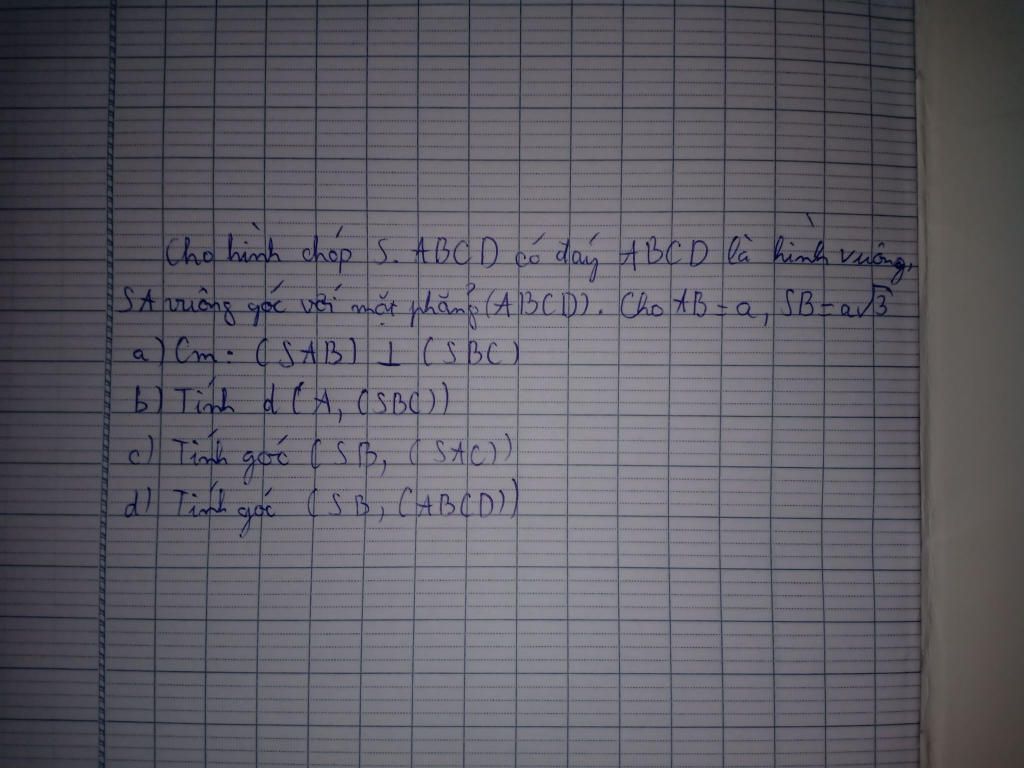 Cho hình chóp S. ABCD có đáy ABCD là hình vuông,
SA vuông góc với mặt phẳng (ABCD). Cho AB = a, SB = a√3
a) Cm: (SAB) ⊥ (SBC)
b) Tính d(A, (SBC))
c) Tính góc (SB, (SAC))
d) Tính góc (SB, (ABCD))